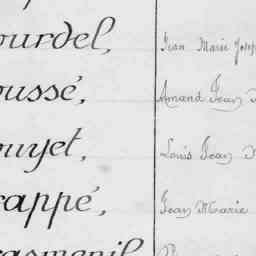 ourdel, Jean Marie Josep
oussé, Amand Jean
ouyet, Louis Jean
rappé, Jean Marie
asmenil